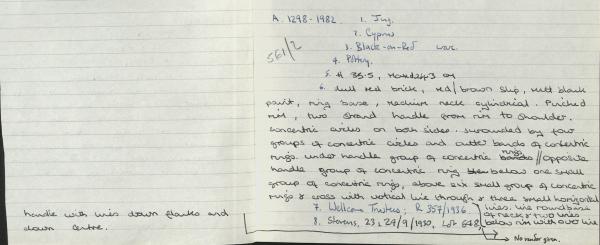 A. 1298-1982. 1. Jug.
2. Cyprus
561/2
3. Black-on-Red ware.
4. Pottery.
5. H 35.5, 24.3 cm
6. dull red brick, red/brown slip, matt black
paint, ring base, medium neck cylindrical. Pinched
rim, two strand handle from rim to shoulder.
concentric circles on both sides. surrounded by four
groups of concentric circles and outer bands of concentric
rings. under handle group of concentric rings // opposite
handle group of concentric ring below one small
group of concentric rings, above small group of concentric
rings & cross with vertical line through & three small horizontal
7. Wellcome Trustees; R 357/1936
lines. line round base
of neck & two lines
below rim with
8. Stevens, 23, 24/9/1930, Lot 678
→ No number given.
handle with lines down flanks and
down centre.